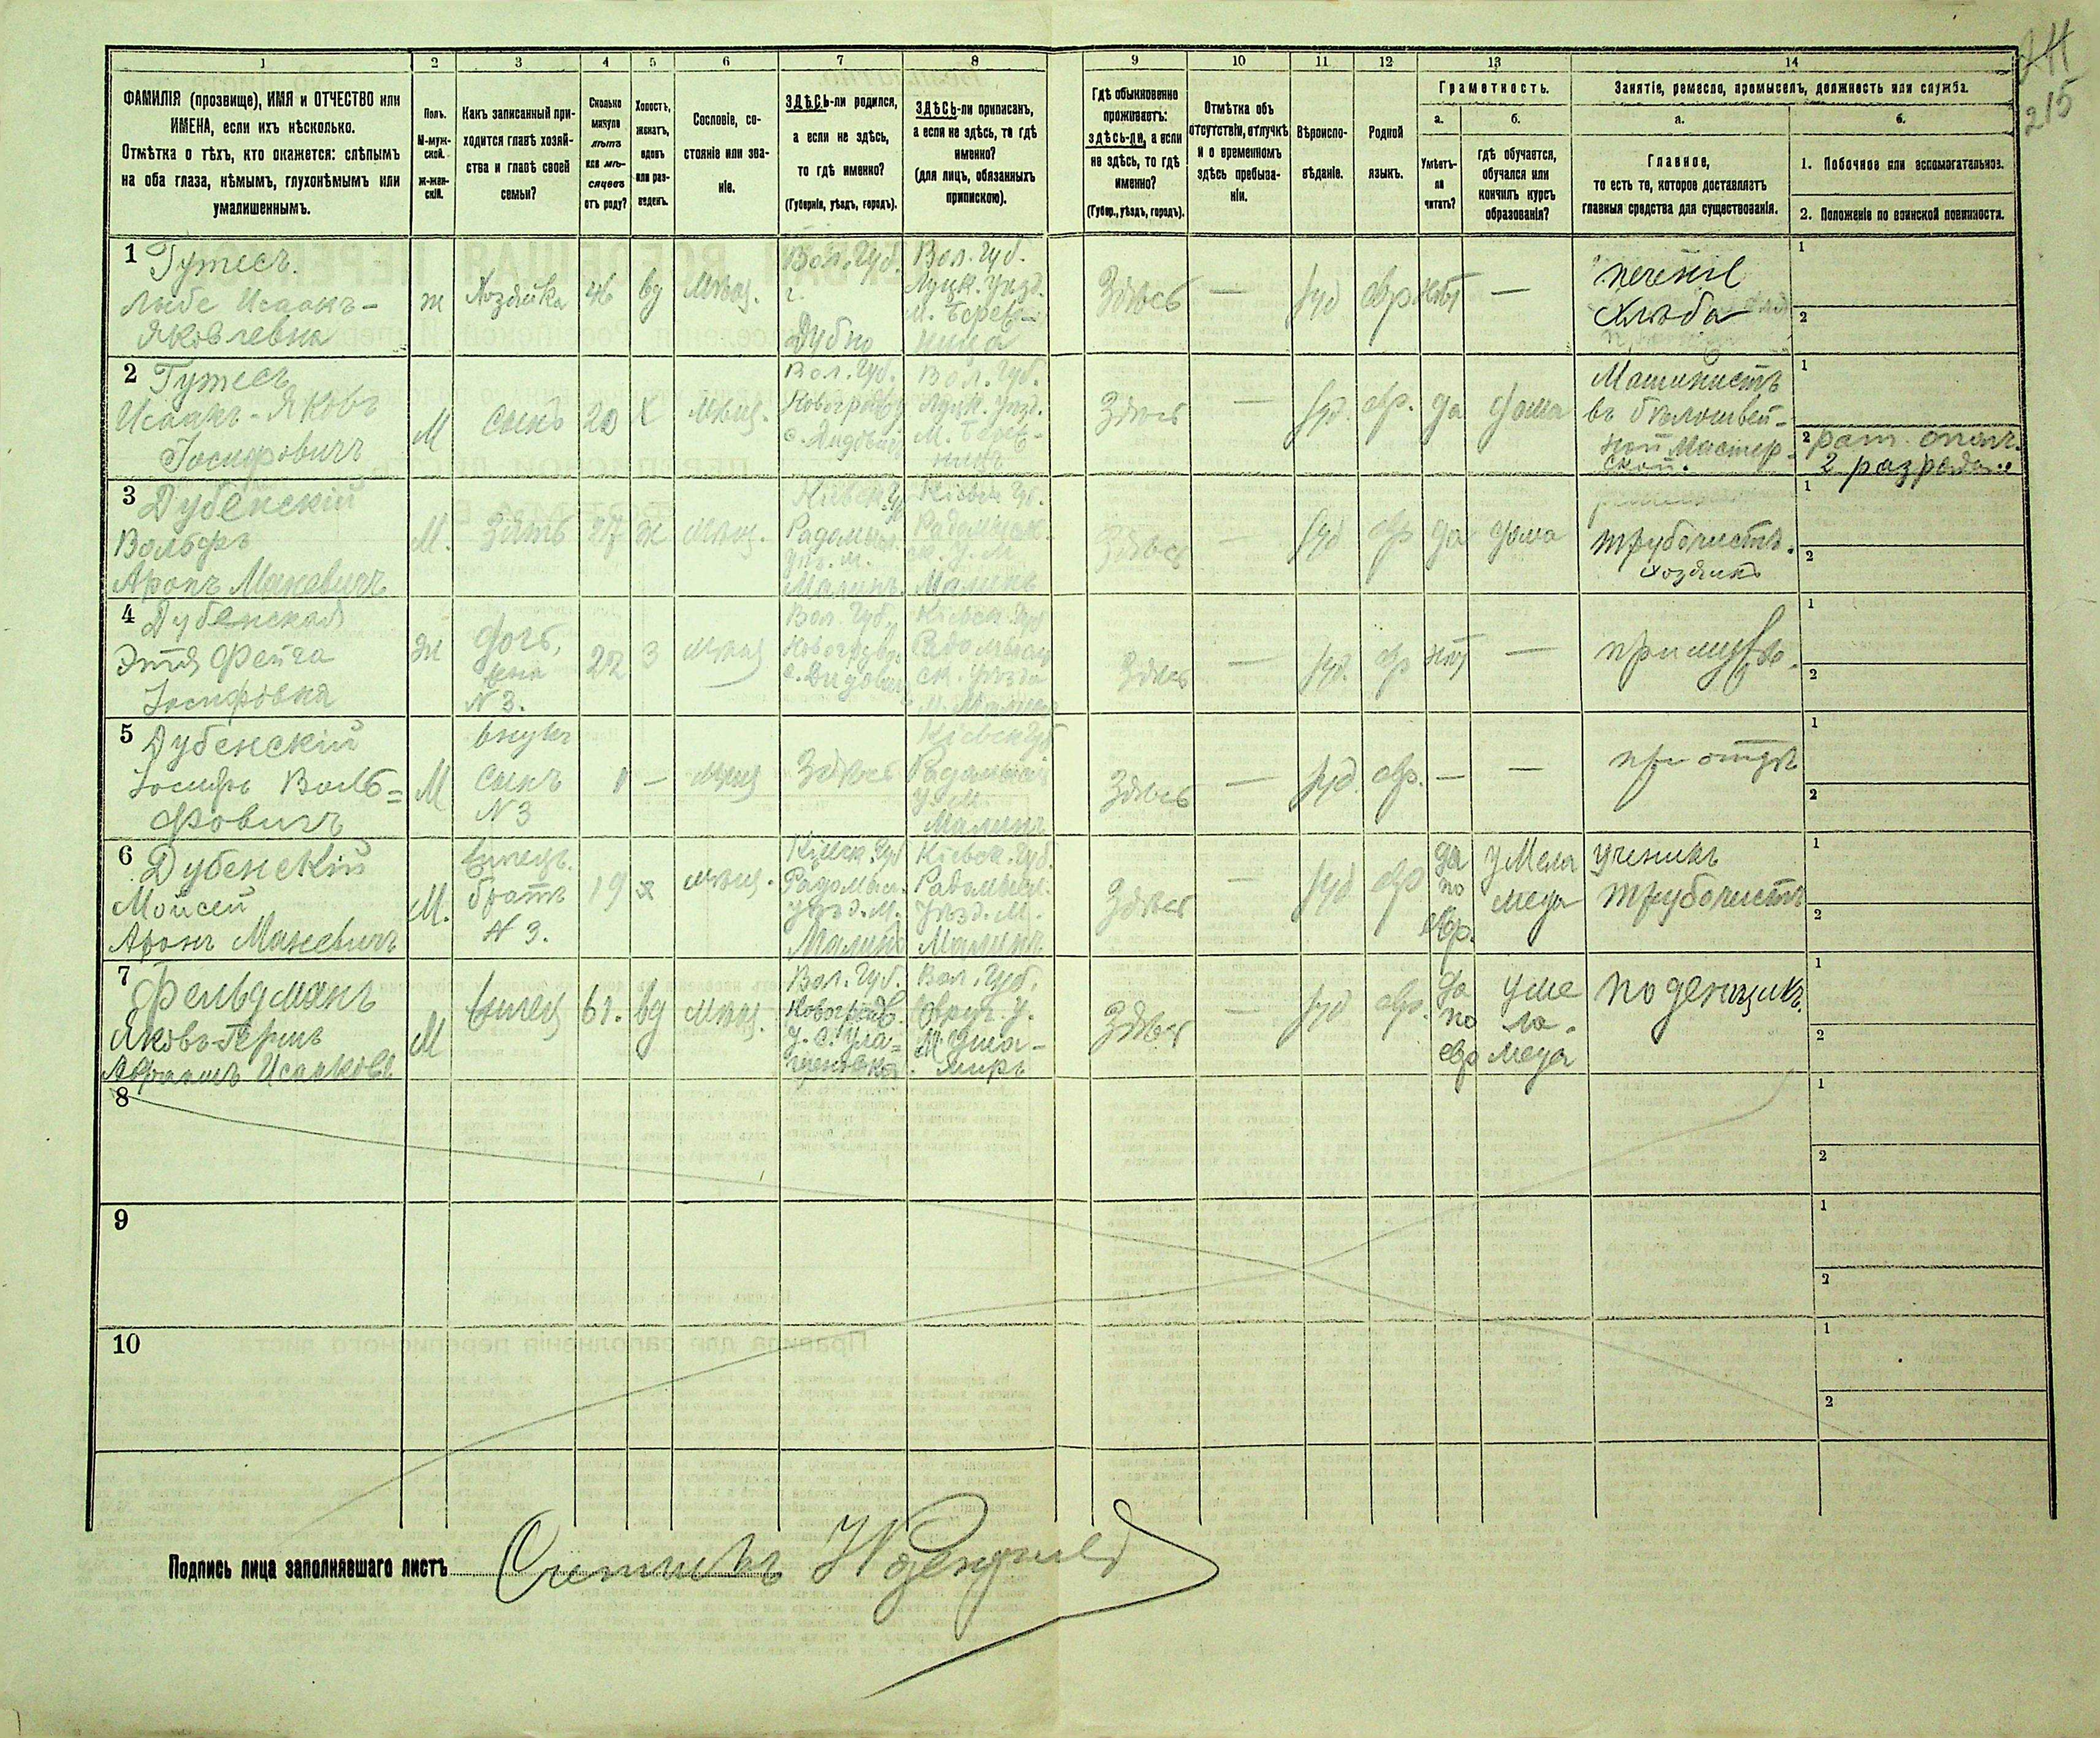 24
215
1 2 3 4 5 6 7 8 9 10 11 12 13 14
ФАМИЛІЯ (прозвище), ИМЯ и ОТЧЕСТВО или
ИМЕНА, если ихъ нѣсколько.
Отмѣтка о тѣхъ, кто окажется: слѣпымъ
на оба глаза, нѣмымъ, глухонѣмымъ или
умалишеннымъ.
Полъ.
М-муж-
ской.
ж-жен-
скій.
Какъ записанный при-
ходится главѣ хозяй-
ства и главѣ своей
семьи?
Сколько
минуло
лѣтъ
или мѣ-
сяцевъ
отъ роду?
Холостъ,
женатъ,
вдовъ
или раз-
веденъ.
Сословіе, со-
стояніе или зва-
ніе.
ЗДѢСЬ-ли родился,
а если не здѣсь,
то гдѣ именно?
(Губернія, уѣздъ, городъ).
ЗДѢСЬ-ли приписанъ,
а если не здѣсь, то гдѣ
именно?
(для лицъ, обязанныхъ
припискою).
Гдѣ обыкновенно
проживаетъ:
здѣсь-ли, а если
не здѣсь, то гдѣ
именно?
(Губер., уѣздъ, городъ).
Отмѣтка объ
отсутствіи, отлучкѣ
и о временномъ
здѣсь пребыва-
ніи.
Вѣроиспо-
вѣданіе.
Родной
языкъ.
Грамотность.
а.
Умѣетъ-
ли
читать?
б.
гдѣ обучается,
обучался или
кончилъ курсъ
образованія?
Занятіе, ремесло, промыселъ, должность или служба.
а.
Главное,
то есть то, которое доставляетъ
главныя средства для существованія.
б.
1. Побочное или вспомогательное.
2. Положеніе по воинской повинности.
1 Гутесъ.
Либе Исаакъ-
Яковлевна
ж
Хозяйка
46
вд
Мѣщ.
Вол. Губ.
г.
Дубно
Вол. Губ.
Луцк. Уѣзд.
Здѣсь
—
Іуд
евр
нѣт
—
печеніе
хлѣба
1
2
2 Гутесъ
Исаакъ-Яковъ
Іосифовичъ
М
Сынъ
20
Х
Мѣщ.
Вол. Губ.
Вол. Губ.
Луцк. Уѣзд.
Здѣсь
—
Іуд.
евр.
да
дома
Машинистъ
въ бѣлошвей-
ной Мастер-
ской.
1
2 рат. опол.
2 разряда
3 Дубенскій
Вольфъ
Аронъ Маневичъ
М.
Зять
27
ж
мѣщ.
Кіевск. Гу
Радомыс.
Уѣз. м.
Малинъ.
Кіевск Губ.
Малинъ
Здѣсь
—
Іуд
евр
да
дома
трубочистъ.
хозяинъ
1
2
4 Дубенская
Этя Фейга
Іосифовна
ж
дочь,
жена
N 3.
22
З
мѣщ
Вол. Губ.
Кіевск. Губ
Здѣсь
—
Іуд.
евр
нѣт
—
при мужѣ.
1
2
5 Дубенскій
Іосифъ Воль=
фовичъ
М
внукъ
сынъ
N 3
1
—
мѣщ
Здѣсь
Кіевск Губ
Малинъ
Здѣсь
—
Іуд.
евр.
—
—
при отцѣ
1
2
6 Дубенскій
Мойсей
Аронъ Маневичъ
М.
жилецъ.
братъ
N 3.
19
х
мѣщ.
Кіевск. Губ
Радомыс.
уѣзд. М.
Малинъ
Кіевск. Губ.
Радомысл.
Уѣзд. М.
Малинъ
Здѣсь
—
Іуд
евр
да
по
евр.
у Мела
меда
ученикъ
трубочистъ
1
2
7 Фельдманъ
Яковъ-Гершъ
М
жилец
61.
вд
мѣщ.
Вол. Губ.
Вол. Губ.
Овруч. У.
Здѣсь
—
Іуд
евр.
да
по
евр
у ме
ла-
меда
поденщикъ.
1
2
8
1
2
9
1
2
10
1
2
Подпись лица заполнявшаго листъ